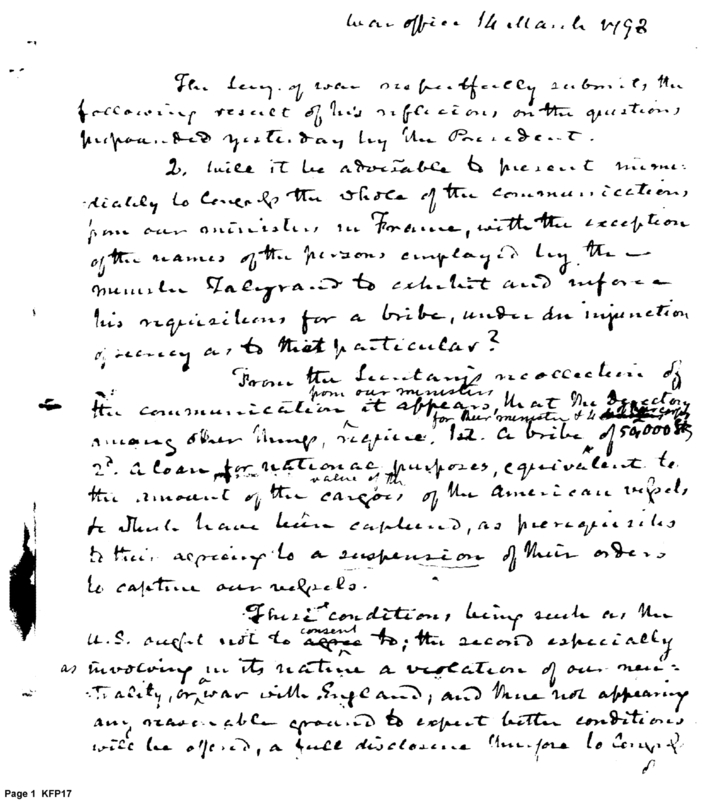 War office 14 March 1798
The Secy. of war respectfully submits the
following result of his reflexions on the questions
propounded yesterday by the President.
2. Will it be adviseable to present imme-
diately to Congress the whole of the communications
from our ministers in France, with the exception
of the names of the persons employed by the
minister Talleyrand to exhibit and inforce
his requisitions for a bribe, under an injunction
of secrecy as to that particular?
From the Secretarys recollection of
from our ministers
the communication it appears, that the Directory
for their minister & 4
among other things, require, 1st. a bribe of 50,000 Stg
2d. a loan for national purposes, equivalent to
value of the
the amount of the cargoes of the American vessels
to which have been captured, as prerequisites
to their agreeing to a suspension of their orders
to capture our vessels.
These conditions being such as the
consent
U.S. ought not to agree to; the second especially
as involving in its nature a violation of our neu-
trality, or war with England; and there not appearing
any reasonable ground to expect better conditions
will be offered, a full disclosure therefore to Congress
Page 1 KFP17